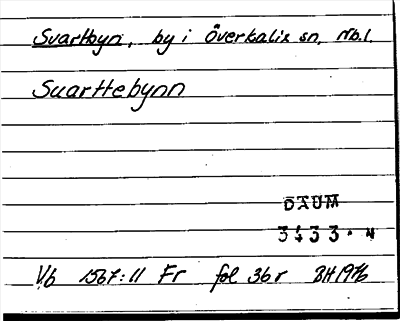 Svartbyn, by i Överkalix sn, Nb.l.
Suarttebynn
DAUM
3433. N
Vb 1567:11 Fr fol 36r BH 1976